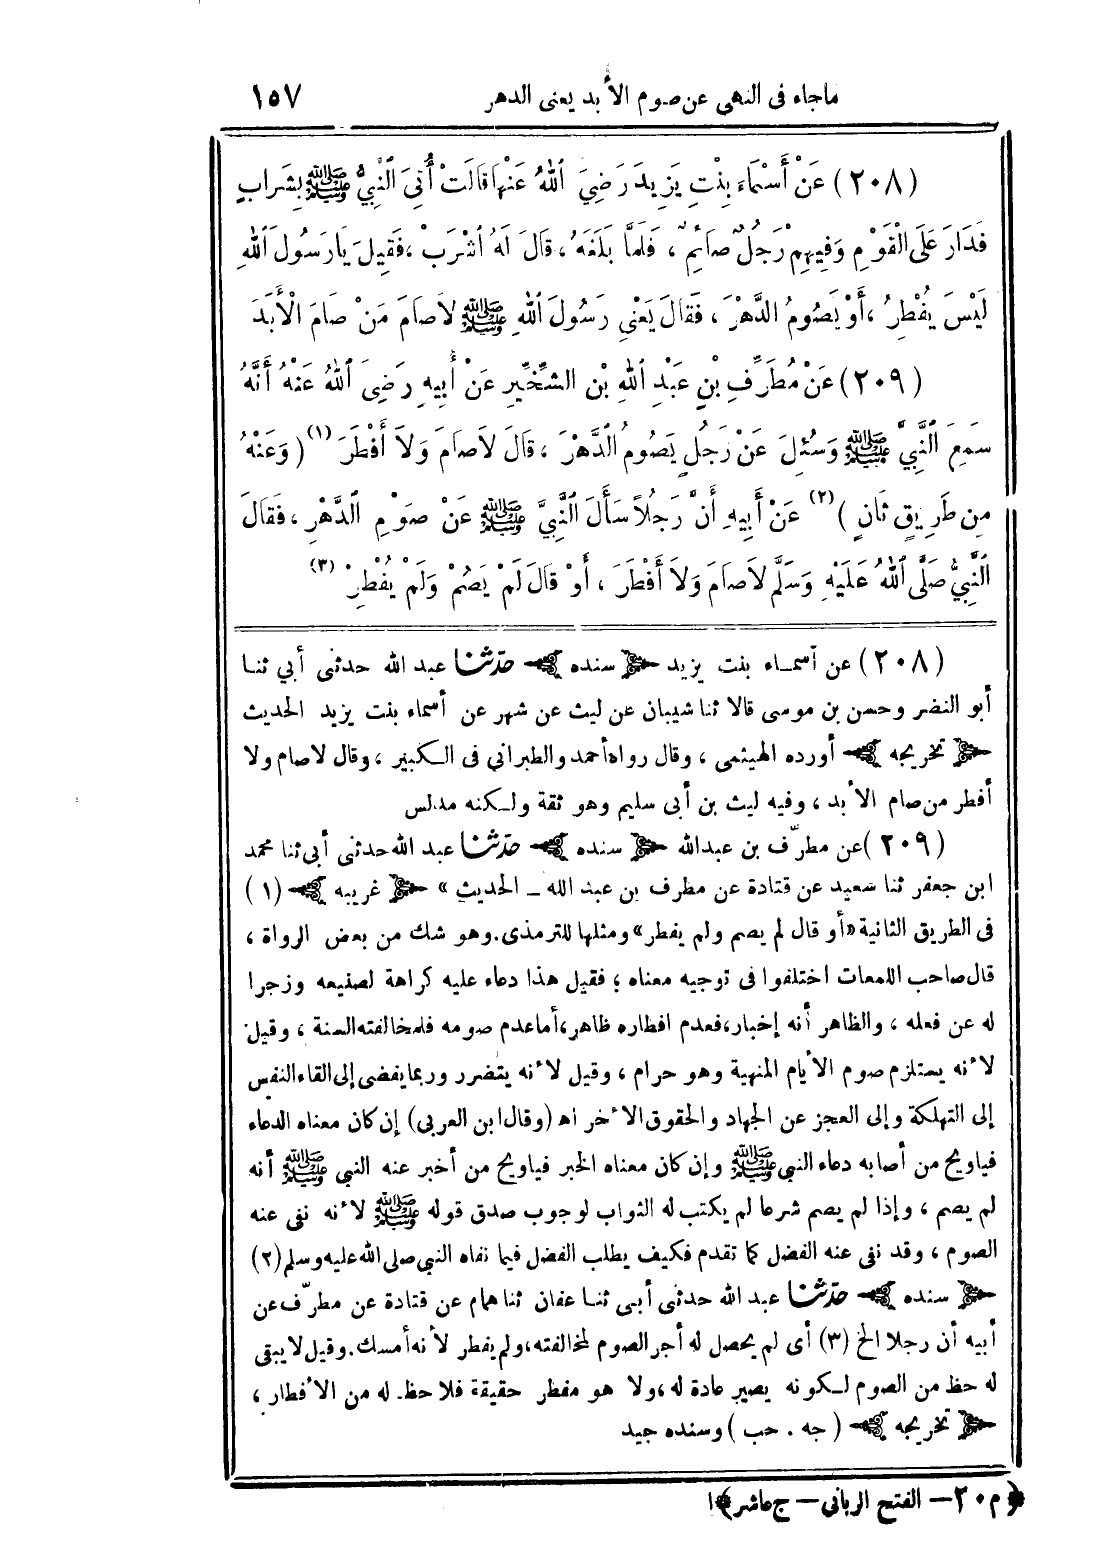 ماجاء فى النهى عن صوم الأبد يعنى الدهر ١٥٧
(٢٠٨) عَنْ أَسْمَاءَ بِنْتِ يَزِيدَ رَضِيَ اللهُ عَنْهَا قَالَتْ أُتِىَ النَّبِيُّ ﷺ بِشَرَابٍ
فَدَارَ عَلَى الْقَوْمِ وَفِيهِمْ رَجُلٌ صَائِمٌ ، فَلَمَّا بَلَغَهُ ، قَالَ لَهُ اشْرَبْ ، فَقِيلَ يَا رَسُولَ اللهِ
لَيْسَ يُفْطِرُ ، أَوْ يَصُومُ الدَّهْرَ ، فَقَالَ يَعْنِى رَسُولَ اللهِ ﷺ لاَصَامَ مَنْ صَامَ الْأَبَدَ
(٢٠٩) عَنْ مُطَرِّفِ بْنِ عَبْدِ اللهِ بْنِ الشِّخِّيرِ عَنْ أَبِيهِ رَضِىَ اللهُ عَنْهُ أَنَّهُ
سَمَعِ النَّبِيَّ ﷺ وَسُئِلَ عَنْ رَجُلٍ يَصُومُ الدَّهْرَ ، قَالَ لاَصَامَ وَلاَ أَفْطَرَ (١) (وَعَنْهُ
مِن طَرِيقٍ ثَانٍ ) (٢) عَنْ أَبِيهِ أَنَّ رَجُلاً سَأَلَ النَّبِيَّ ﷺ عَنْ صَوْمِ الدَّهْرِ ، فَقَالَ
النَّبِيُّ صَلَّى اللهُ عَلَيْهِ وَسَلَّم لاَصَامَ وَلاَ أَفْطَرَ ، أَوْ قَالَ لَمْ يَصُمْ وَلَمْ يُفْطِرْ (٣)
(٢٠٨) عن أسماء بنت يزيد ﴿ سنده ﴾ حدّثنا عبد الله حدثنى أبي ثنا
أبو النضر وحسن بن موسى قالا ثنا شيبان عن ليث عن شهر عن أسماء بنت يزيد الحديث
﴿ تخريجه ﴾ أورده الهيثمى ، وقال رواه أحمد والطبراني فى الكبير ، وقال لاصام ولا
أفطر من صام الأبد ، وفيه ليث بن أبى سليم وهو ثقة ولكنه مدلس
(٢٠٩) عن مطرّف بن عبدالله ﴿ سنده ﴾ حدّثنا عبد الله حدثنى أبى ثنا محمد
ابن جعفر ثنا سعيد عن قتادة عن مطرف بن عبد الله ـ الحديث » ﴿ غريبه ﴾ (١)
فى الطريق الثانية «أو قال لم يصم ولم يفطر» ومثلها للترمذى. وهو شك من بعض الرواة ،
قال صاحب اللمعات اختلفوا فى توجيه معناه ؛ فقيل هذا دعاء عليه كراهة لصنيعه وزجرا
له عن فعله ، والظاهر أنه إخبار، فعدم افطاره ظاهر، أما عدم صومه فلمخالفته السنة ، وقيل
لأنه يستلزم صوم الأيام المنهية وهو حرام ، وقيل لأنه يتضرر وربما يفضى إلى القاء النفس
إلى التهلكة وإلى العجز عن الجهاد والحقوق الأخر اه (وقال ابن العربى) إن كان معناه الدعاء
فياويح من أصابه دعاء النبى ﷺ وإن كان معناه الخبر فياويح من أخبر عنه النبى ﷺ أنه
لم يصم ، وإذا لم يصم شرعا لم يكتب له الثواب لوجوب صدق قوله ﷺ لأنه نفى عنه
الصوم ، وقد نفى عنه الفضل كما تقدم فكيف يطلب الفضل فيما نفاه النبى صلى الله عليه وسلم (٢)
﴿ سنده ﴾ حدّثنا عبد الله حدثنى أبى ثنا عفان ثنا همام عن قتادة عن مطرّف عن
أبيه أن رجلا الخ (٣) أى لم يحصل له أجر الصوم لمخالفته، ولم يفطر لأنه أمسك. وقيل لا يبقى
له حظ من الصوم لكونه يصير عادة له، ولا هو مفطر حقيقة فلا حظ له من الأفطار ،
﴿ تخريجه ﴾ ( جه . حب ) وسنده جيد
﴿م ٢٠ – الفتح الربانى – ج عاشر﴾